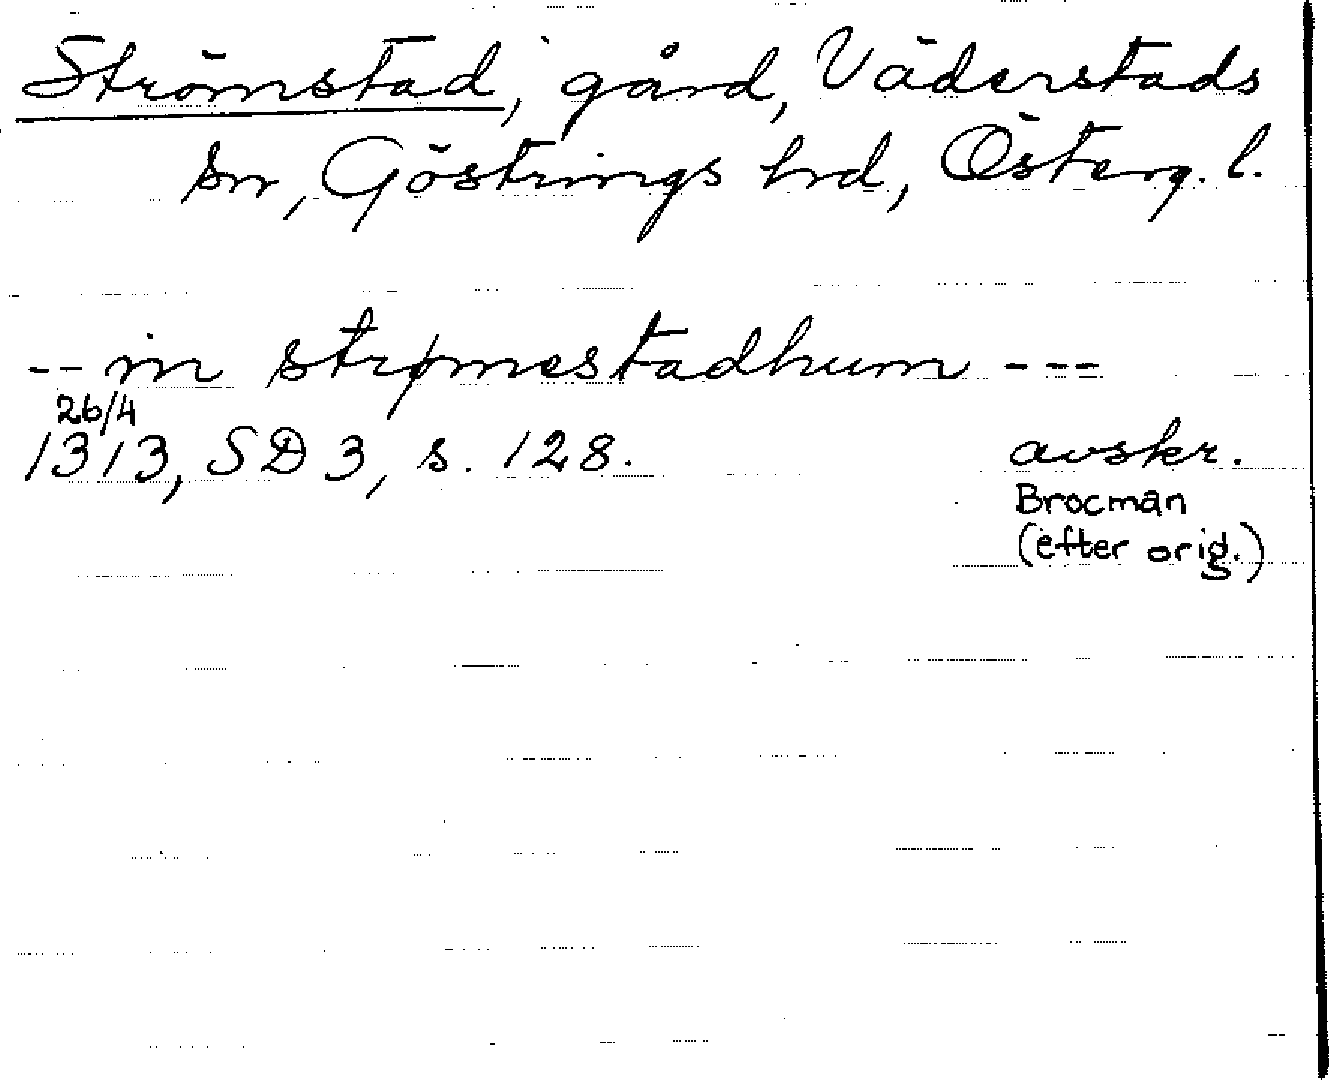 Strömstad, gård, Väderstads
sn, Göstrings hrd, Österg. l.
-- in strømestadhum ---
26/4
1313, SD 3, s. 128. avskr.
Brocman
(efter orig.)